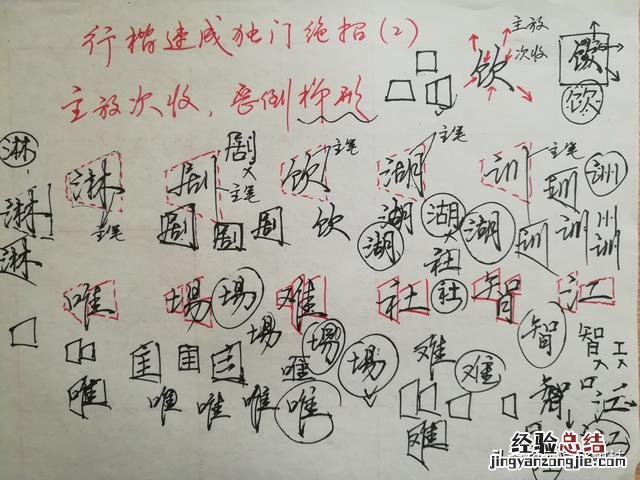 行楷速成独门绝招(2)
主放次收,
主放
次收
饮
饮
饮
淋
淋
淋
淋
主笔
剧
剧
主笔
剧
剧
剧
饮
主笔
饮
湖
主笔
湖
湖
湖
湖
训
主笔
训
训
训
训
川
训
唯
場
場
难
社
社
社
智
江
場
場
場
唯
难
难
智
智
工
唯
唯
唯
唯
唯
难
智
江
江
经验总结
jingyanzongjie.com